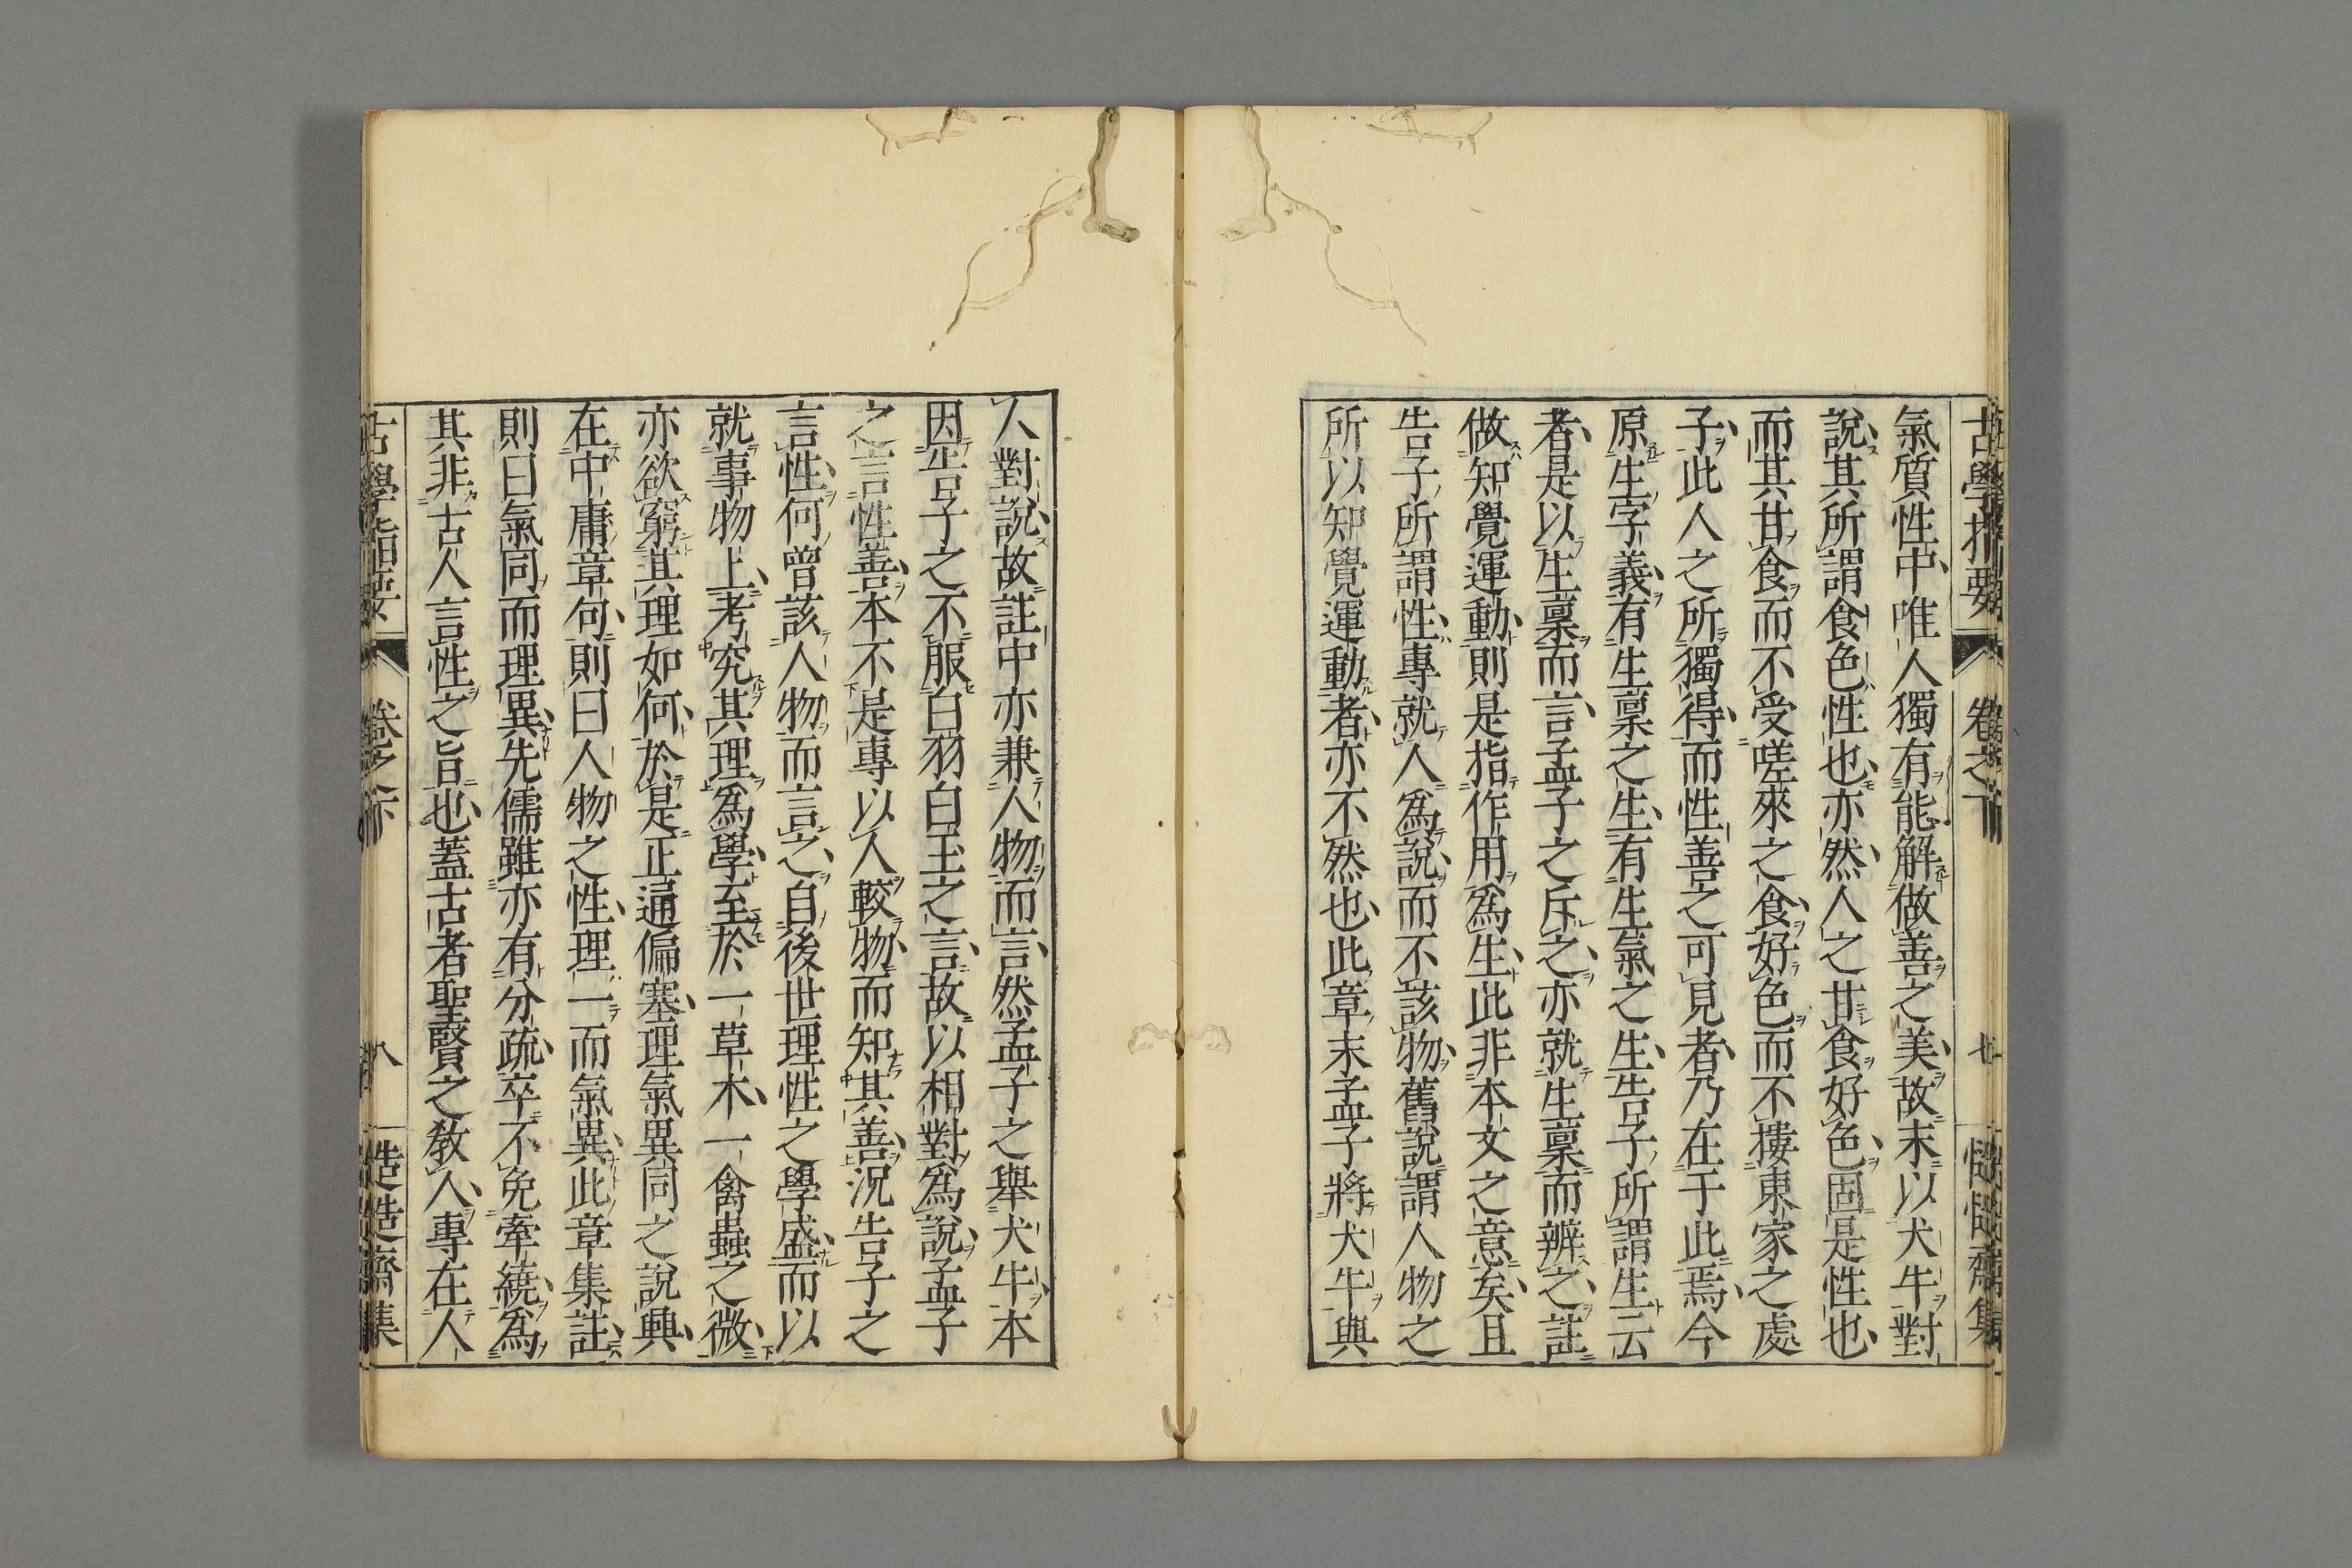 古學指要
卷之下
七
慥慥齋集
氣質性中唯人獨有能解做善之美故末以犬牛對
說其所謂食色性也亦然人之甘食好色固是性也
而其甘食而不受嗟來之食好色而不摟東家之處
子此人之所獨得而性善之可見者乃在于此焉今
原生字義有生稟之生有生氣之生告子所謂生云
者是以生稟而言孟子之斥之亦就生稟而辨之註
做知覺運動則是指作用爲生此非本文之意矣且
告子所謂性專就人爲說而不該物舊說謂人物之
所以知覺運動者亦不然也此章末孟子將犬牛與
人對說故註中亦兼人物而言然孟子之舉犬牛本
因告子之不服白羽白玉之言故以相對爲說孟子
之言性善本不是專以人較物而知其善況告子之
言性何曾該人物而言之自後世理性之學盛而以
就事物上考究其理爲學至於一草木一禽蟲之微
亦欲窮其理如何於是正通偏塞理氣異同之說興
在中庸章句則曰人物之性理一而氣異此章集註
則曰氣同而理異先儒雖亦有分疏卒不免牽繞爲
其非古人言性之旨也蓋古者聖賢之教人專在人
古學指要
卷之下
八
慥慥齋集